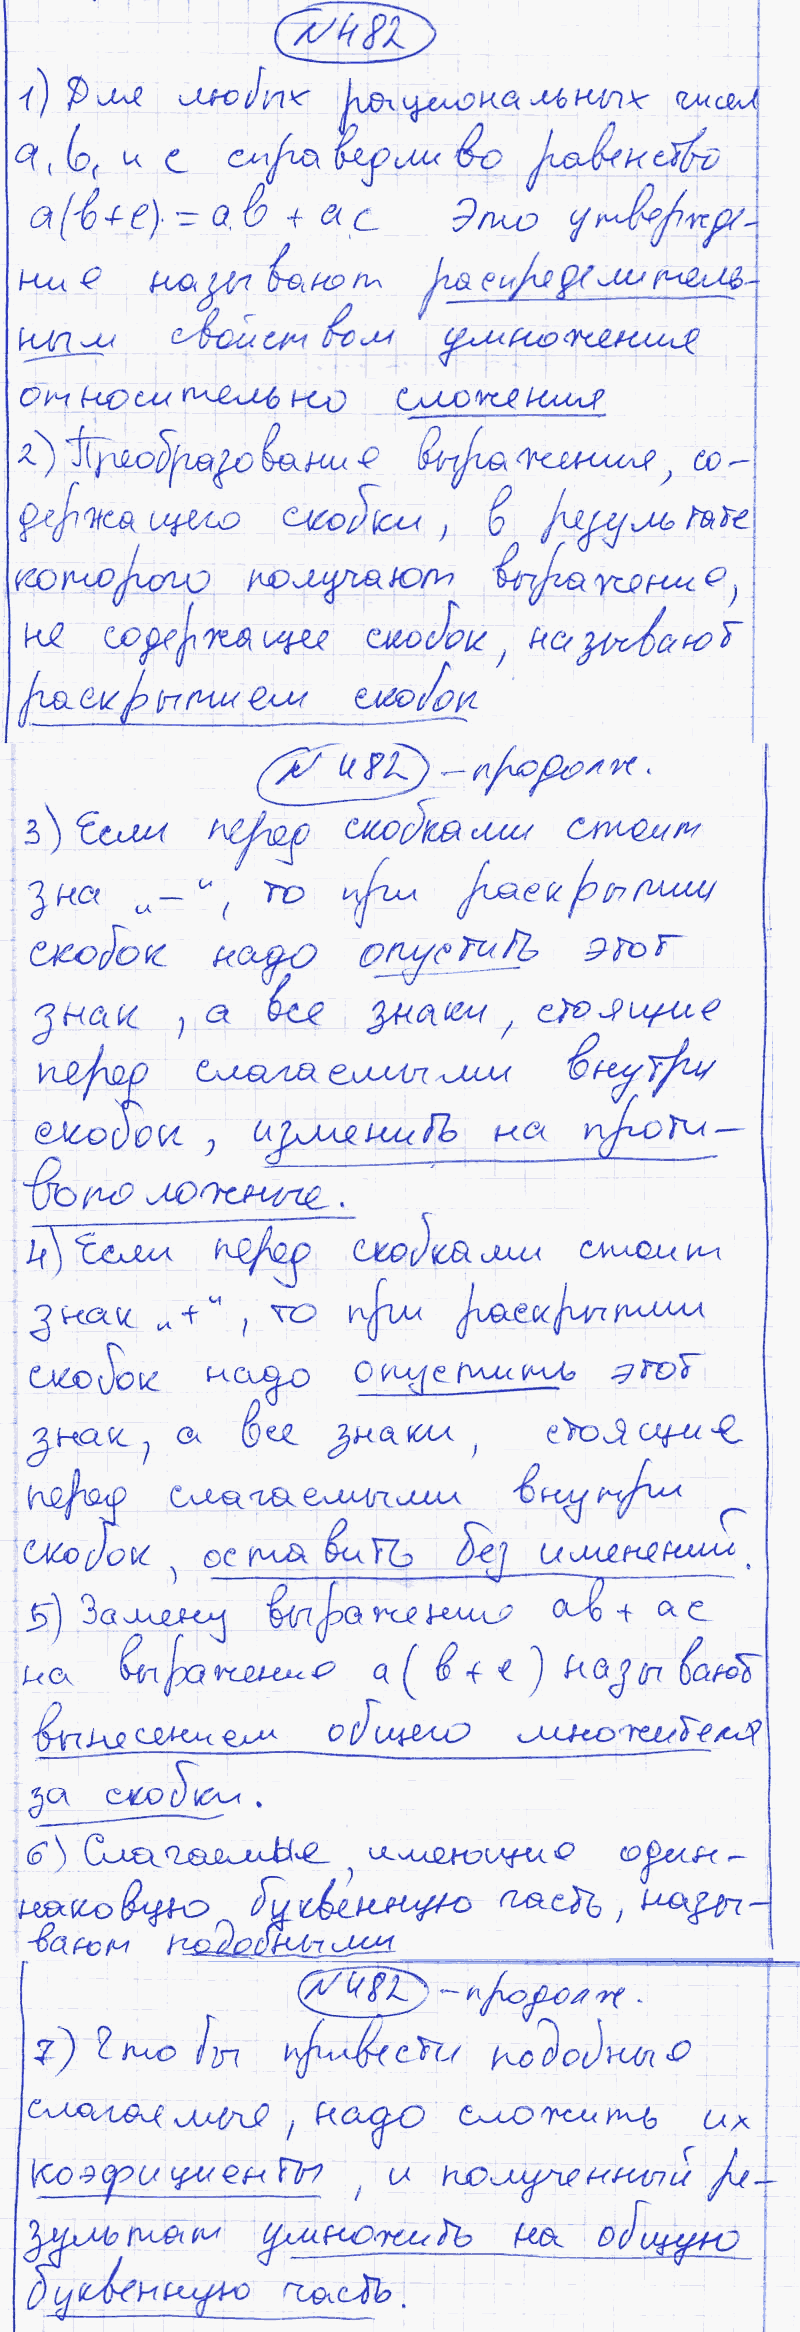 №482
1) Для любых рациональных чисел
а, в, и с справедливо равенство
а(в+с) = ав + ас Это утвержде-
ние называют распределитель-
ным свойством умножения
относительно сложения
2) Преобразование выражения, со-
держащего скобки, в результате
которого получают выражение,
не содержащее скобок, называют
раскрытием скобок
№482 - продолж.
3) Если перед скобками стоит
зна „-“, то при раскрытии
скобок надо опустить этот
знак, а все знаки, стоящие
перед слагаемыми внутри
скобок, изменить на проти-
воположные.
4) Если перед скобками стоит
знак „+“, то при раскрытии
скобок надо опустить этот
знак, а все знаки, стоящие
перед слагаемыми внутри
скобок, оставить без именений.
5) Замену выражение ав + ас
на выражение а(в+с) называют
вынесением общего множителя
за скобки.
6) Слагаемые, имеющие один-
наковую буквенную часть, назы-
вают подобными
№482 - продолж.
7) Чтобы привести подобные
слагаемые, надо сложить их
коэфициенты, и полученный ре-
зультат умножить на общую
буквенную часть.